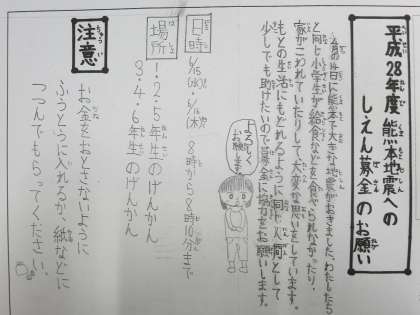 平成28年度 熊本地震への
しえん募金のお願い
4月14日に熊本で大きな地震がおきました。わたしたち
と同じ小学生が給食などを食べられなかったり、
家がこわれていたりして大変な思いをしています。
もとの生活にもどれるように同じ人間として
少しでも助けたいので募金に協力をお願いします。
よろしく
お願いします。
日時
6/15(水)・6/16(木) 8時から8時10分まで
場所
1・2・5年生のげんかん
3・4・6年生のげんかん
注意
お金をおとさないように
ふうとうに入れるか、紙などに
つつんでもらってください。